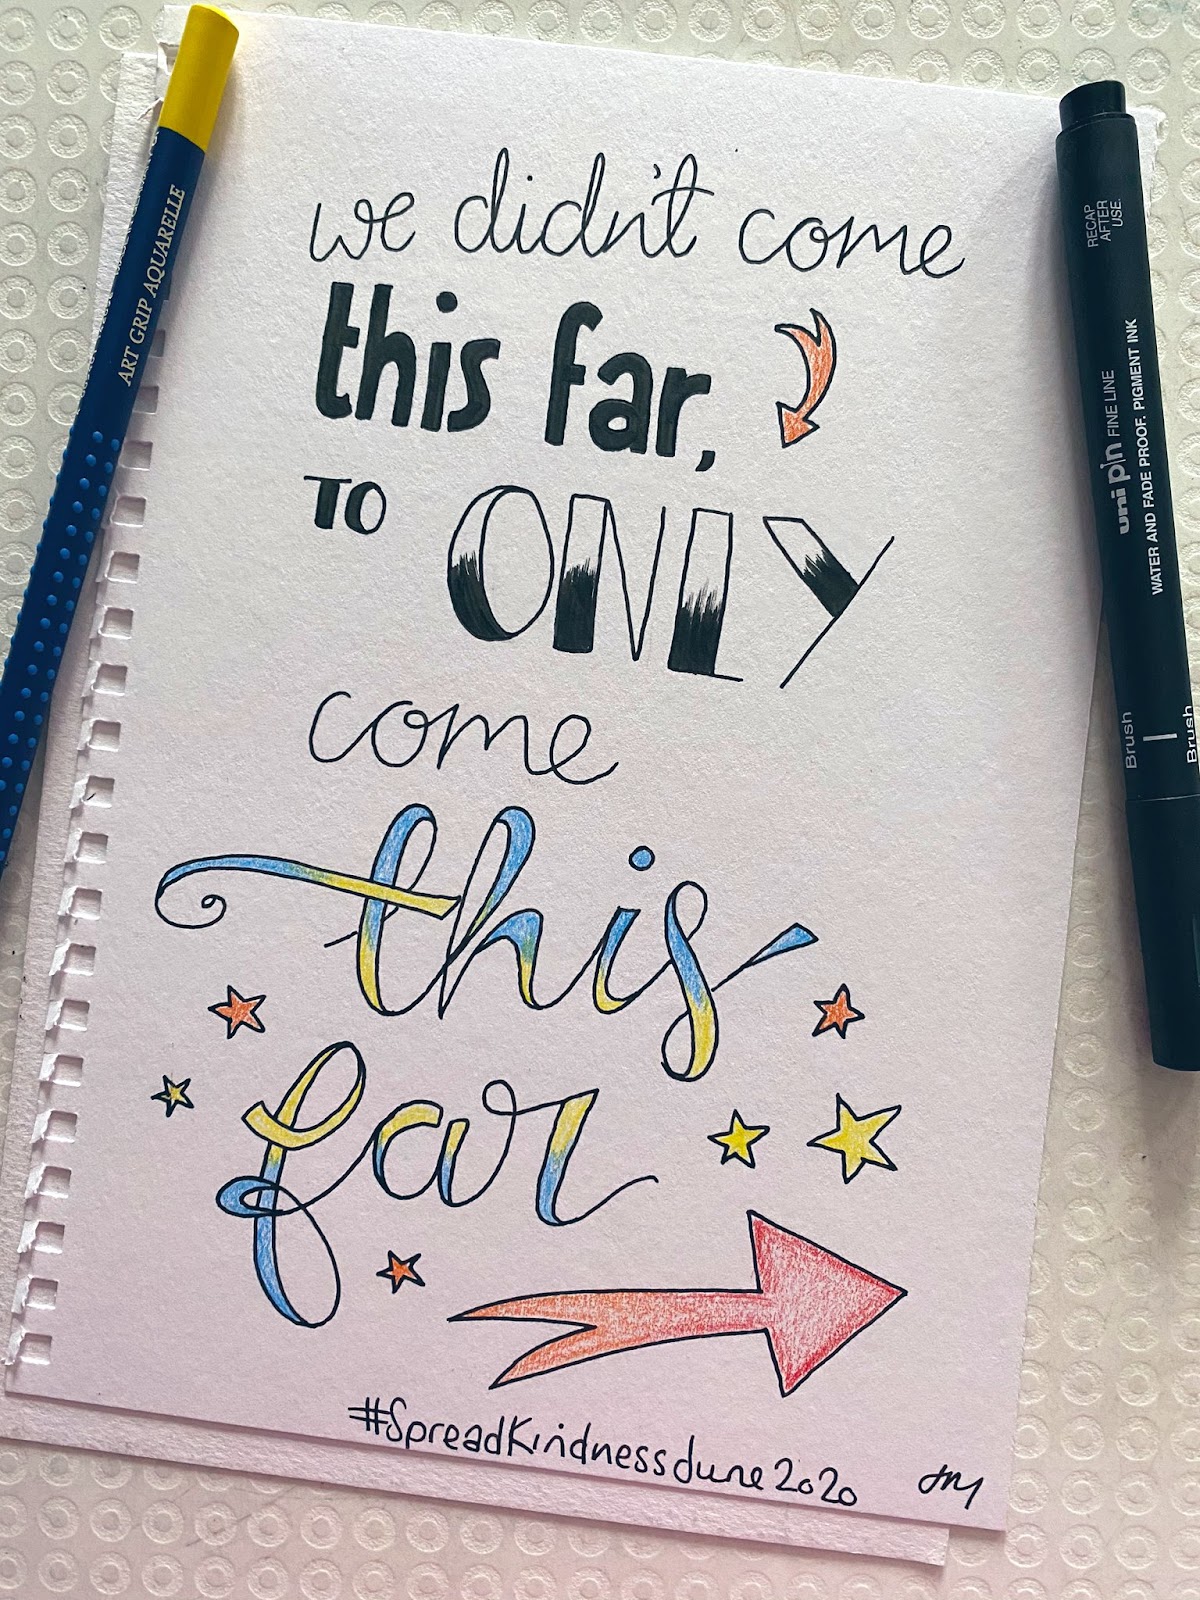 we didn't come
this far,
TO ONLY
come
this
far
#SpreadKindnessJune2020
ART GRIP AQUARELLE
RECAP
AFTER
USE.
uni pin FINE LINE
WATER AND FADE PROOF. PIGMENT INK
Brush
Brush